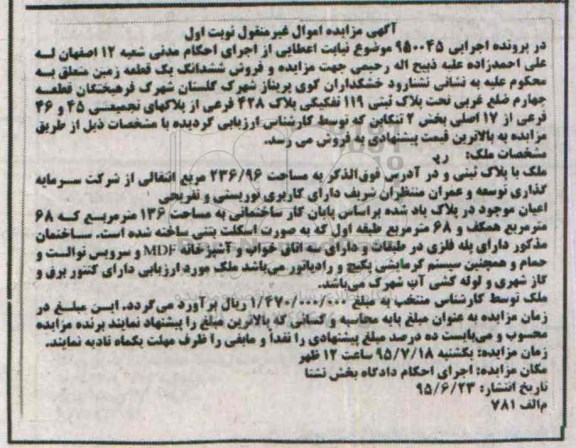 آگهی مزایده اموال غیرمنقول نوبت اول
در پرونده اجرایی ۹۵۰۰۴۵ موضوع نیابت اعطایی از اجرای احکام مدنی شعبه ۱۲ اصفهان له
علی احمدزاده علیه ذبیح اله رحیمی جهت مزایده و فروش ششدانگ یک قطعه زمین متعلق به
محکوم علیه به نشانی نشتارود خشکداران کوی پریناز شهرک گلستان شهرک فرهیختگان قطعه
چهارم ضلع غربی تحت پلاک ثبتی ۱۱۹ تفکیکی پلاک ۴۲۸ فرعی از پلاکهای تجمیعی ۴۵ و ۴۶
فرعی از ۱۷ اصلی بخش ۲ تنکابن که توسط کارشناس ارزیابی گردیده با مشخصات ذیل از طریق
مزایده به بالاترین قیمت پیشنهادی به فروش می رسد.
مشخصات ملک:
ملک با پلاک ثبتی و در آدرس فوق‌الذکر به مساحت ۲۳۶/۹۶ مربع انتقالی از شرکت سرمایه
گذاری توسعه و عمران منتظران شریف دارای کاربری توریستی و تفریحی
اعیان موجود در پلاک یاد شده براساس پایان کار ساختمانی به مساحت ۱۳۶ مترمربع که ۶۸
مترمربع همکف و ۶۸ مترمربع طبقه اول که به صورت اسکلت بتنی ساخته شده است. ساختمان
مذکور دارای پله فلزی در طبقات و دارای سه اتاق خواب و آشپزخانه MDF و سرویس توالت و
حمام و همچنین سیستم گرمایشی پکیج و رادیاتور می‌باشد ملک مورد ارزیابی دارای کنتور برق و
گاز شهری و لوله کشی آب شهرک می‌باشد.
ملک توسط کارشناس منتخب به مبلغ ۱/۴۷۰/۰۰۰/۰۰۰ ریال برآورد می‌گردد. این مبلغ در
زمان مزایده به عنوان مبلغ پایه محاسبه و کسانی که بالاترین مبلغ را پیشنهاد نمایند برنده مزایده
محسوب و می‌بایست ده درصد مبلغ پیشنهادی را نقداً و مابقی را ظرف مهلت یکماه تادیه نمایند.
زمان مزایده: یکشنبه ۹۵/۷/۱۸ ساعت ۱۲ ظهر
مکان مزایده: اجرای احکام دادگاه بخش نشتا
تاریخ انتشار: ۹۵/۶/۲۳
م‌الف ۷۸۱